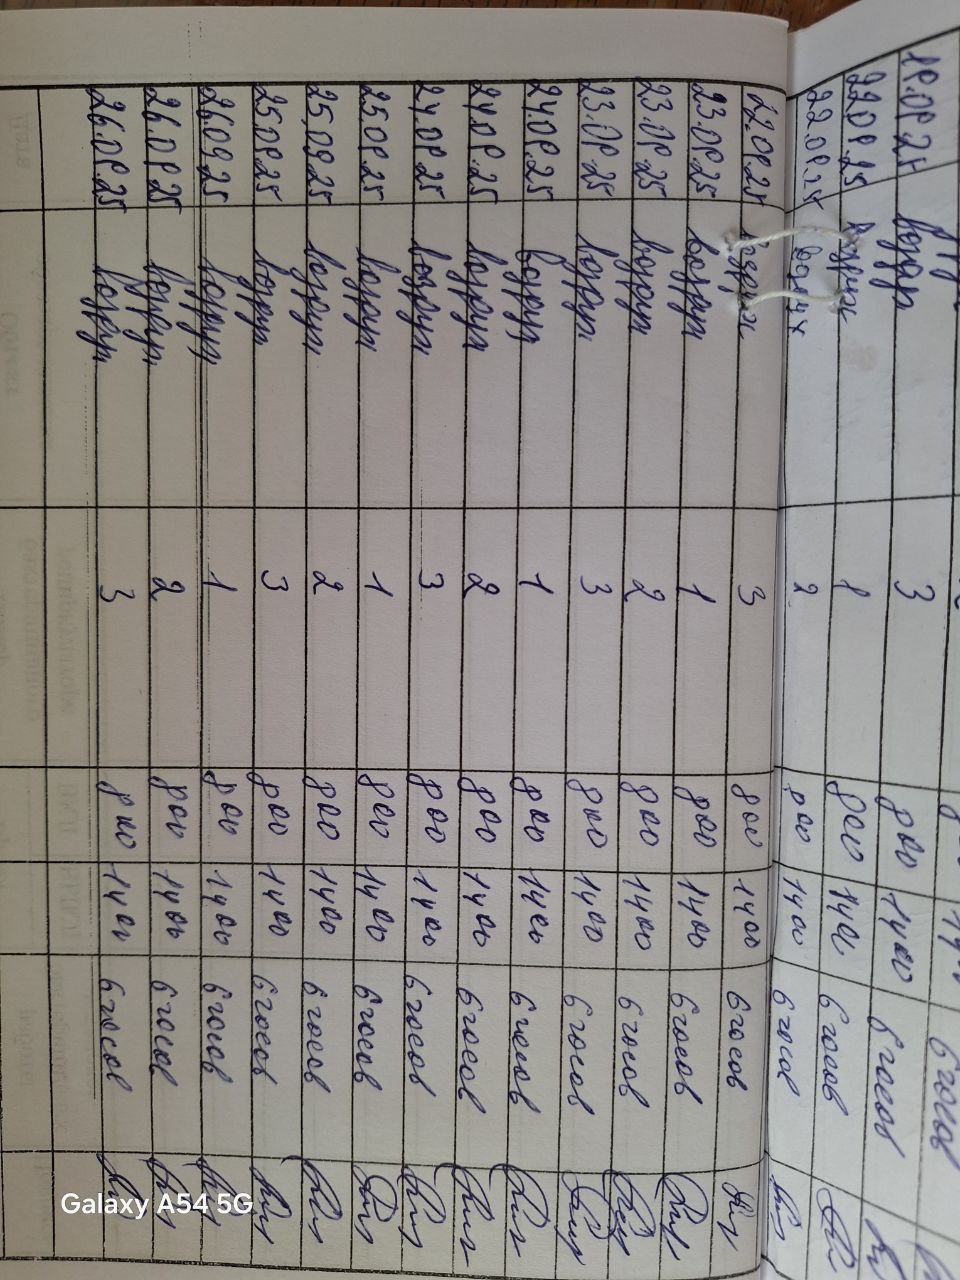 1400 6 часов
19.09.25 воздух 3 800 1400 6 часов
22.09.25 воздух 1 800 1400 6 часов
22.09.25 воздух 2 800 1400 6 часов
22.09.25 воздух 3 800 1400 6 часов
23.09.25 воздух 1 800 1400 6 часов
23.09.25 воздух 2 800 1400 6 часов
23.09.25 воздух 3 800 1400 6 часов
24.09.25 воздух 1 800 1400 6 часов
24.09.25 воздух 2 800 1400 6 часов
24.09.25 воздух 3 800 1400 6 часов
25.09.25 воздух 1 800 1400 6 часов
25.09.25 воздух 2 800 1400 6 часов
25.09.25 воздух 3 800 1400 6 часов
26.09.25 воздух 1 800 1400 6 часов
26.09.25 воздух 2 800 1400 6 часов
26.09.25 воздух 3 800 1400 6 часов
Galaxy A54 5G